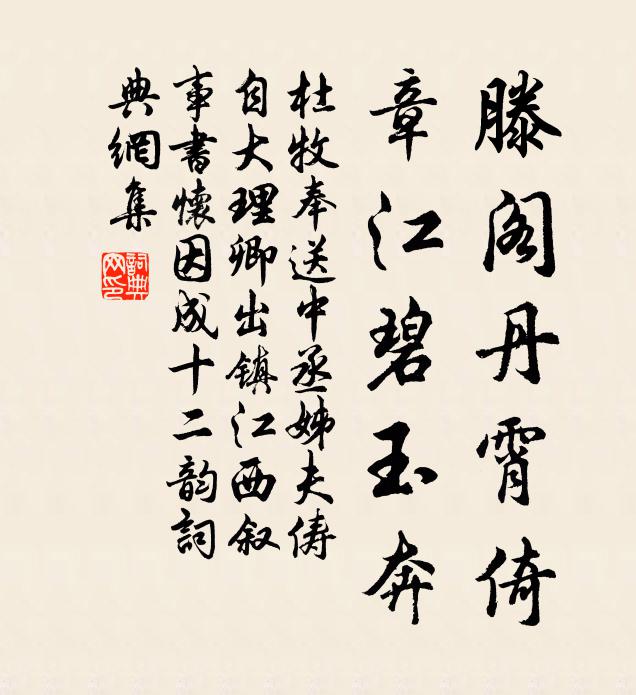 滕阁丹霄倚
章江碧玉奔
杜牧奉送中丞姊夫俦
自大理卿出镇江西叙
事書懷因成十二韵詞
典網集
詞典
网印